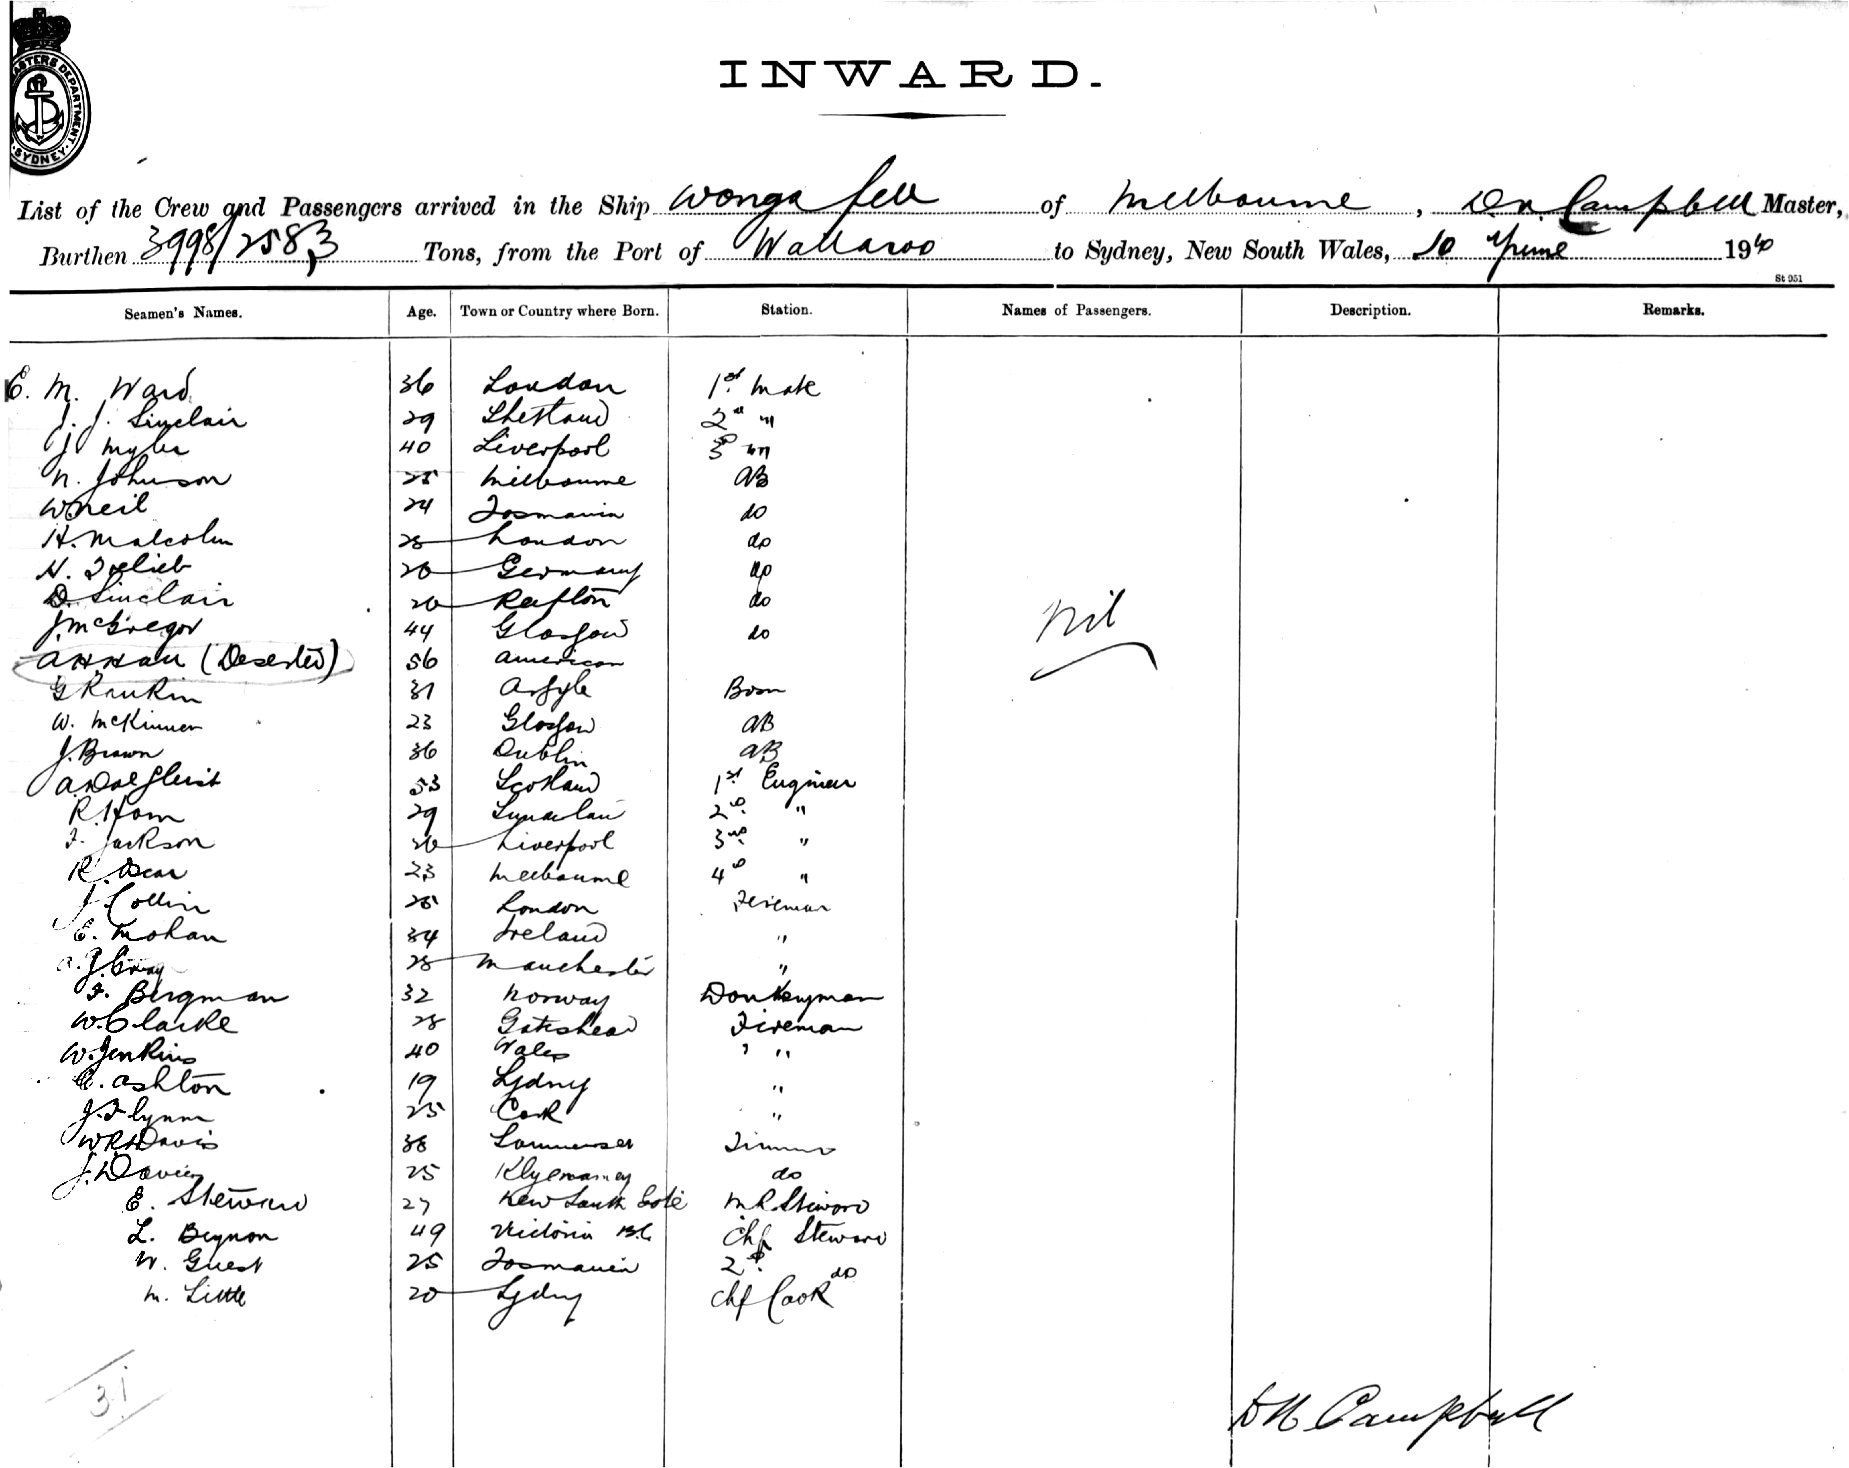 MASTERS DEPARTMENT SYDNEY
INWARD.
List of the Crew and Passengers arrived in the Ship Wonga Fell of Melbourne, D. N. Campbell Master,
Burthen 3998/2583 Tons, from the Port of Wallaroo to Sydney, New South Wales, 10 June 1910
St 951
Seamen's Names. Age. Town or Country where Born. Station. Names of Passengers. Description. Remarks.
E. M. Ward 36 London 1st Mate
J. J. Sinclair 29 Shetland 2nd "
J Myles 40 Liverpool 3rd "
N. Johnson 25 Melbourne AB
W Neil 24 Tasmania do
H. Malcolm 28 London do
H. 26 Germany do
D. Sinclair 20 do
J. McGregor 44 Glasgow do
A H Hall (Deserted) 56 American
G Rankin 31 Argyle Bosn
W. McKinnon 23 Glasgow AB
J. Brown 36 Dublin AB
A. Dalgleish 53 Scotland 1st Engineer
R. Hom 29 2nd "
F. Jackson 26 Liverpool 3rd "
R. Oscar 23 Melbourne 4th "
J. Collin 25 London Fireman
E. Mohan 34 Ireland "
A. J. 28 Manchester "
F. Bergman 32 Norway Donkeyman
W. Clarke 28 Gateshead Fireman
W. Jenkins 40 Wales "
A. Ashton 19 Sydney "
J. Flynn 25 Cork "
W R H Davis 38 Trimmer
J. Davies 25 do
E. Steward 27 New South M R Steward
L. Beynon 49 Victoria B.C. Chf Steward
W. Guest 25 Tasmania 2nd do
M. Little 20 Sydney Chf Cook
Nil
31
D N Campbell